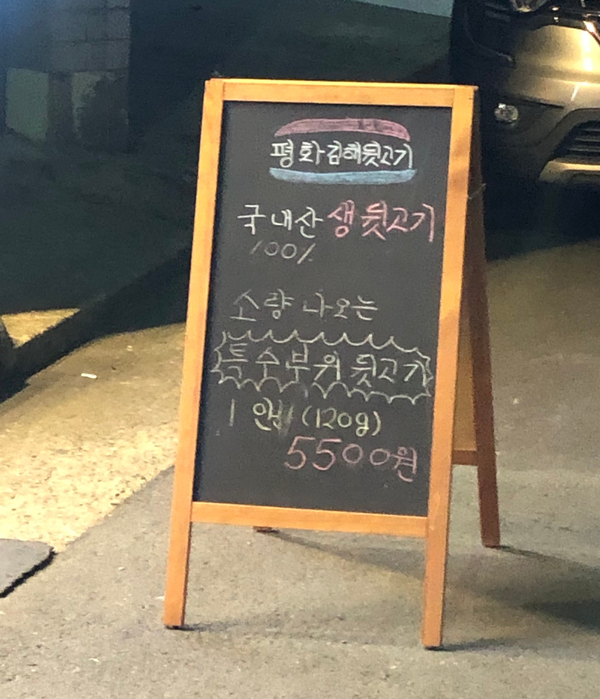 평화김해뒷고기
국내산 생뒷고기
100%
소량 나오는
특수부위 뒷고기
1인분 (120g)
5500원